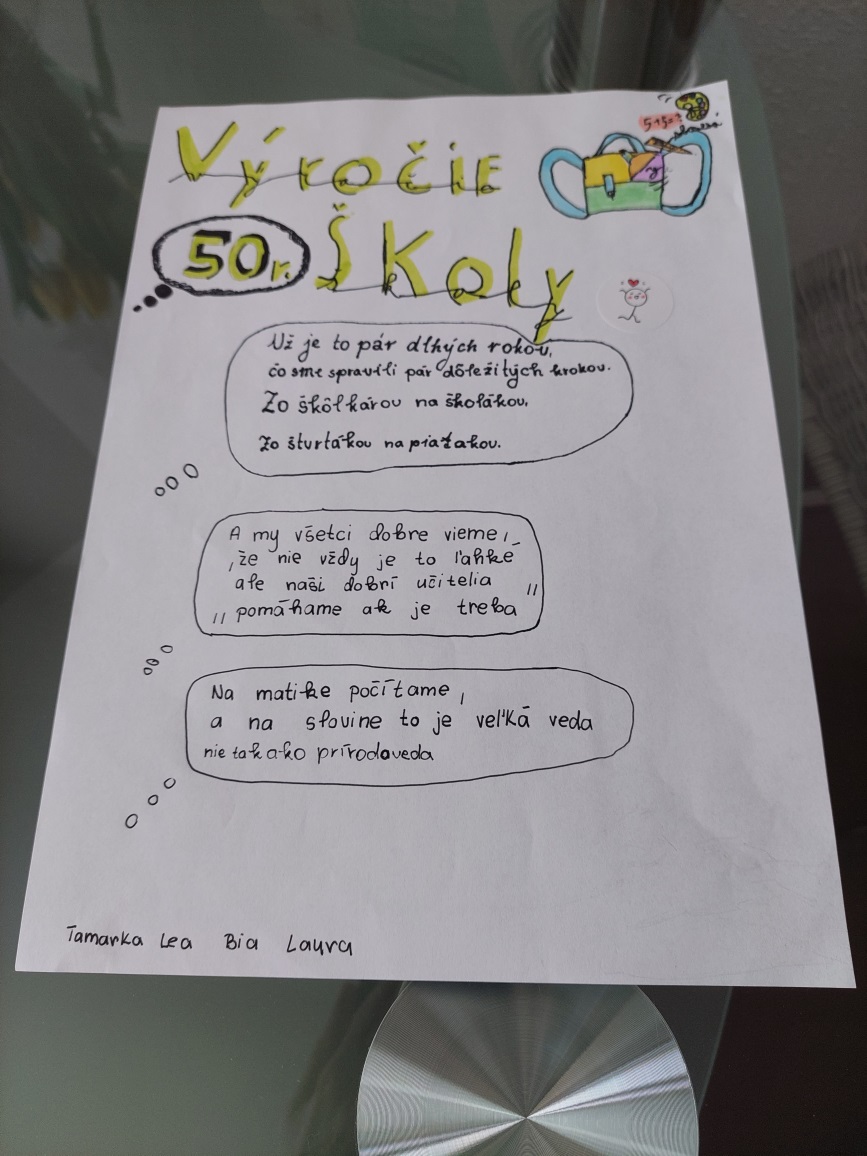 Výročie
50r. Školy
5+5=?
Už je to pár dlhých rokov,
čo sme spravili pár dôležitých krokov.
Zo škôlkárov na školákov,
Zo štvrtákov na piatakov.
A my všetci dobre vieme,
,že nie vždy je to ľahké
ale naši dobrí učitelia
„pomáhame ak je treba"
Na matike počítame,
a na slovine to je veľká veda
nie tak ako prírodoveda
Tamarka Lea Bia Laura